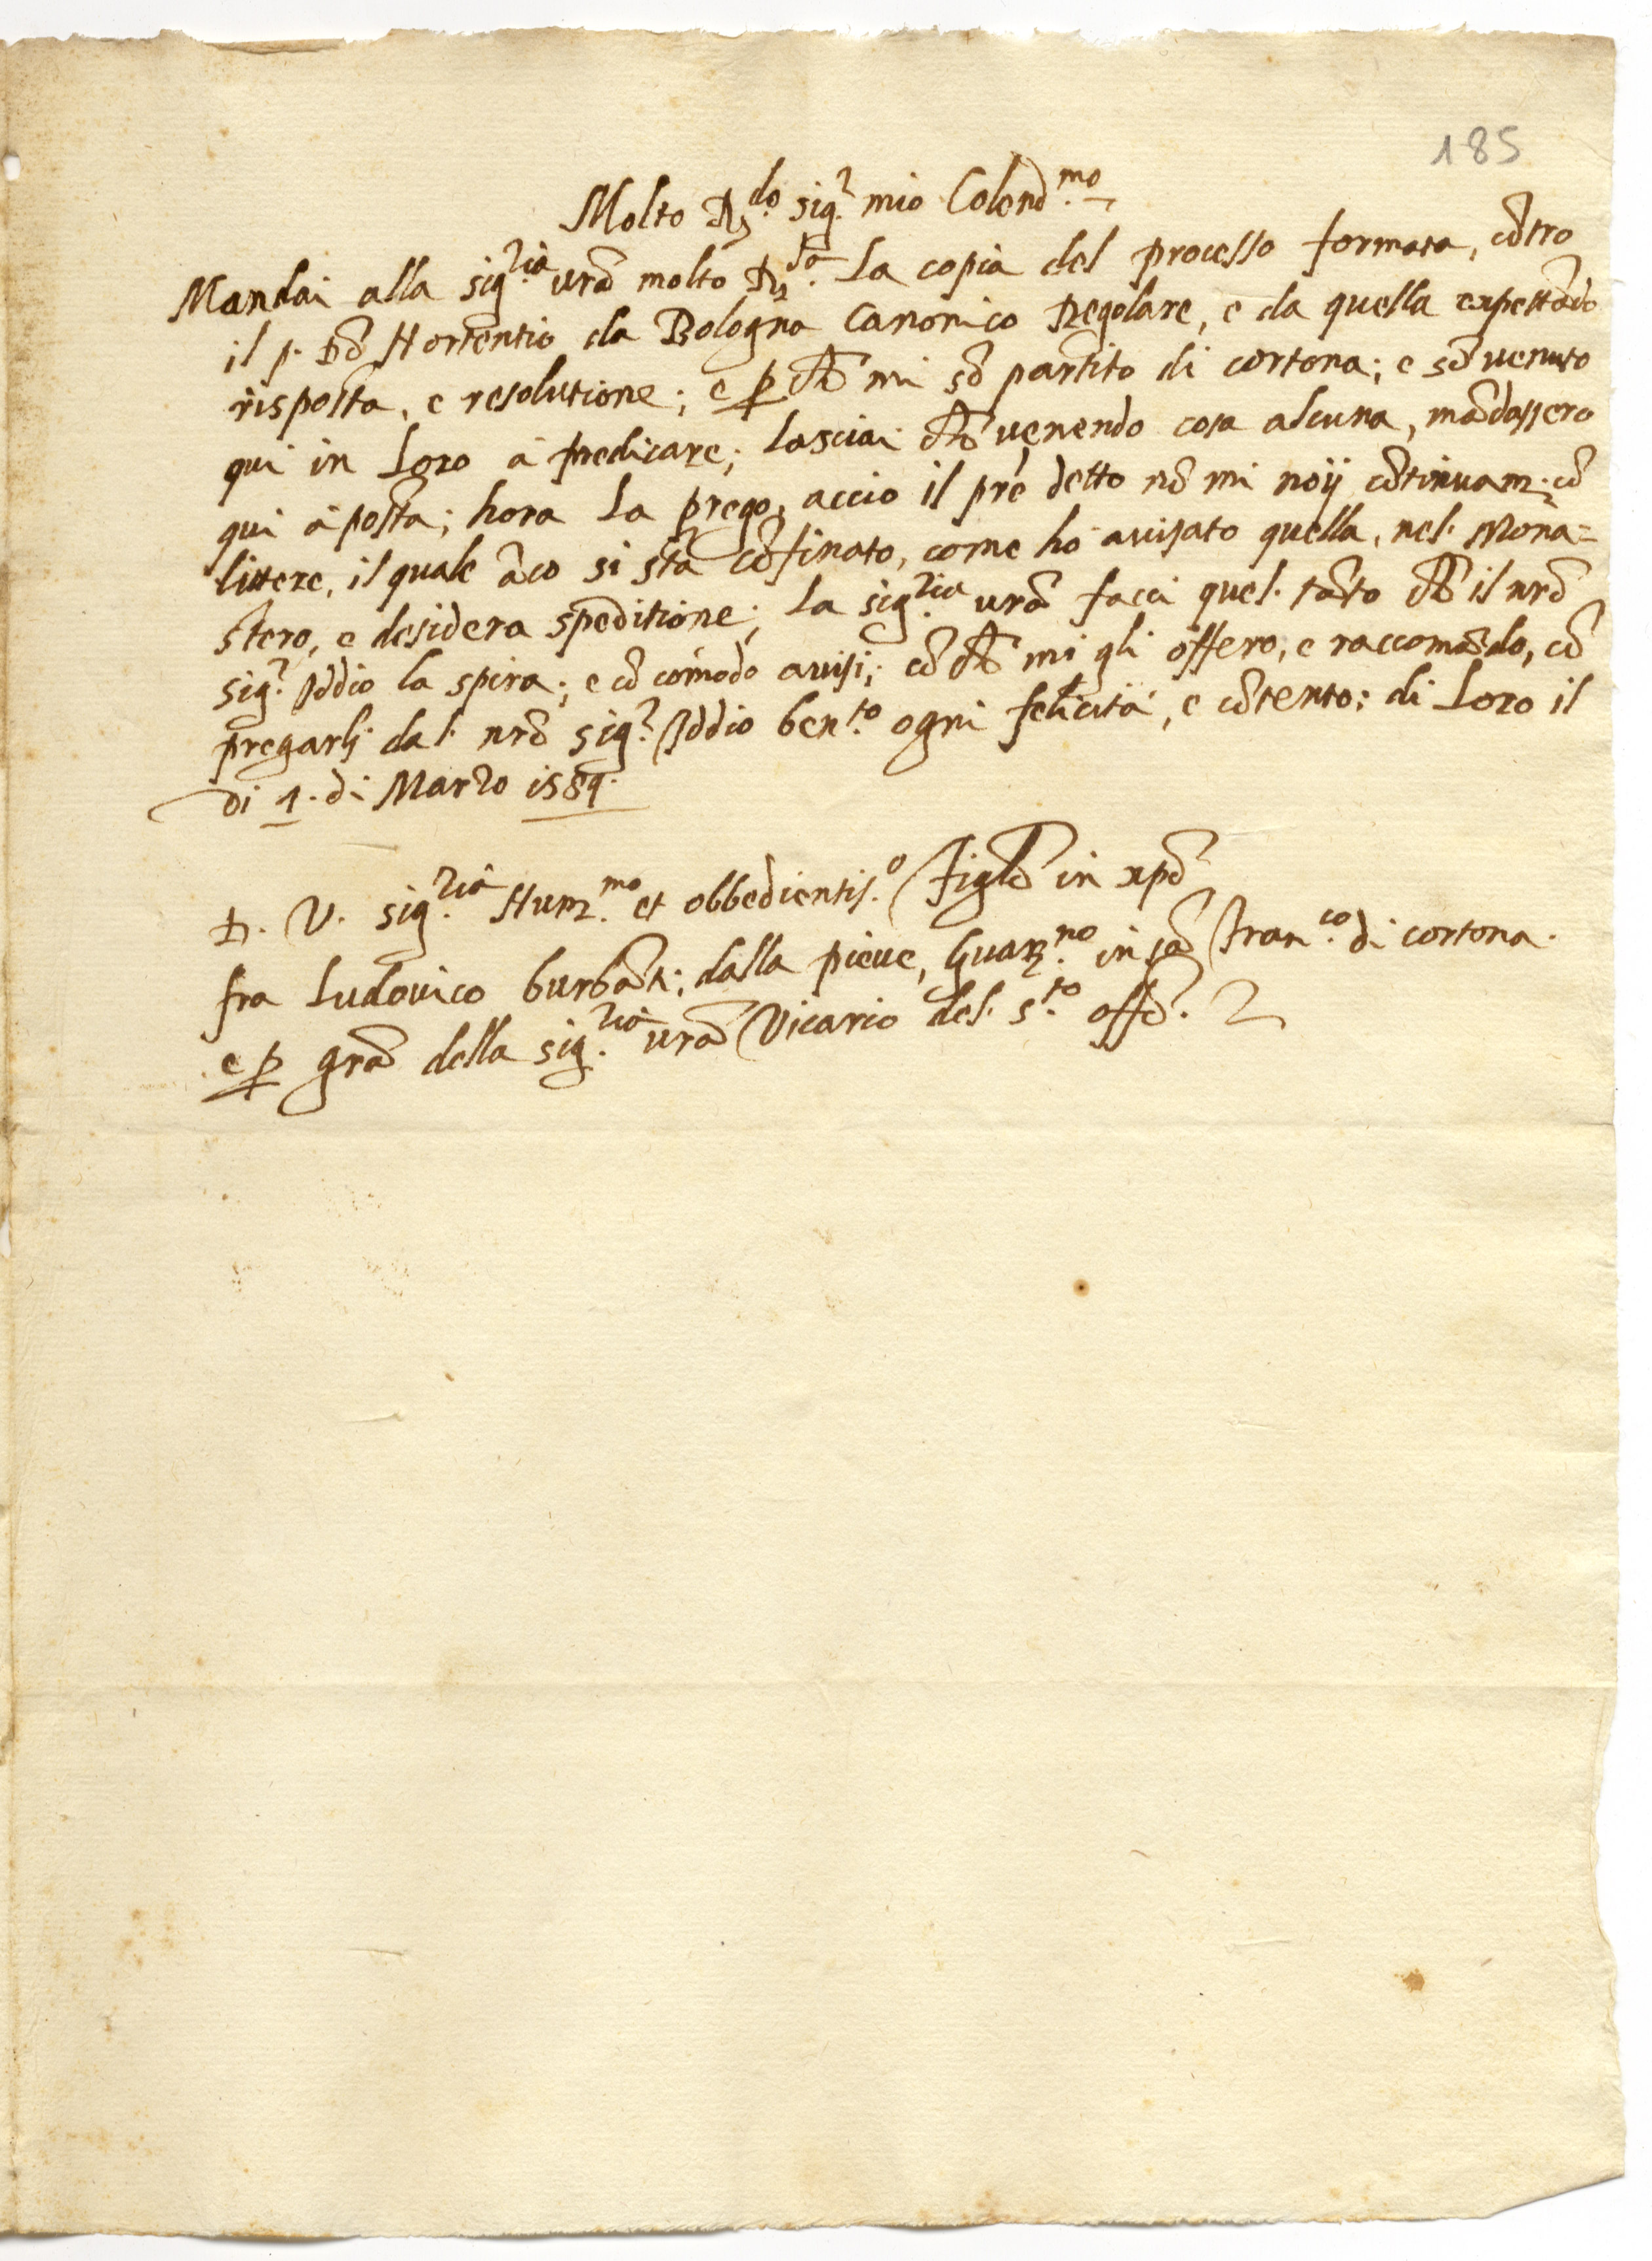 185
Molto R.do sig.r mio Colend.mo
Mandai alla sig.ria vrã molto R.da La copia del processo formata, cõtro
il p. Dõ Hortentio da Bologna Canonico Regolare, e da quella expettãdo
risposta, e resolutione; e p chē mi sõ partito di cortona; e sõ venuto
qui in Loro à predicare; lasciai chē venendo cosa alcuna, mãdassero
qui à posta; hora La prego, accio il prē detto nõ mi noij cõtinuam. cõ
littere, il quale ãco si sta cõfinato, come ho avisato quella, nel Mona=
stero, e desidera speditione; La sig.ria vrã facci quel tãto chē il nrõ
sig.r Iddio la spira; e cõ cómodo avisi; cõ chē mi gli offero, e raccomãdo, cõ
pregarli dal nrõ sig.r Iddio ben.to ogni felicità, e cõtento: di Loro il
di 1. di Marzo 1589.
D. V. sig.ria Hum.mo et obbedientis.o figlõ in xpõ
fra Ludovico burbãti; dalla pieve, Guar.no in sã Fran.co di cortona.
e p grã della sig.ria vrã Vicario del s.to offõ.